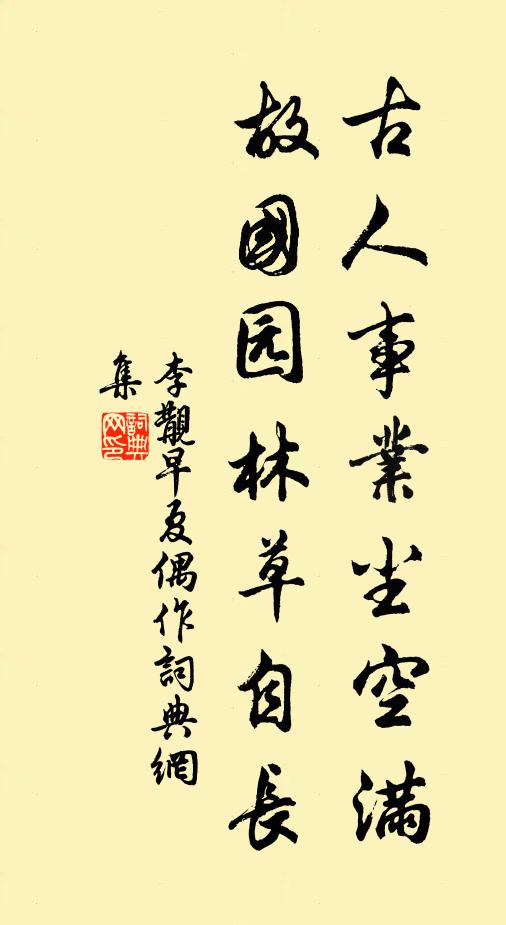 古人事業尘空滿
故國园林草自長
李覯早夏偶作詞典網
集
詞典
网印